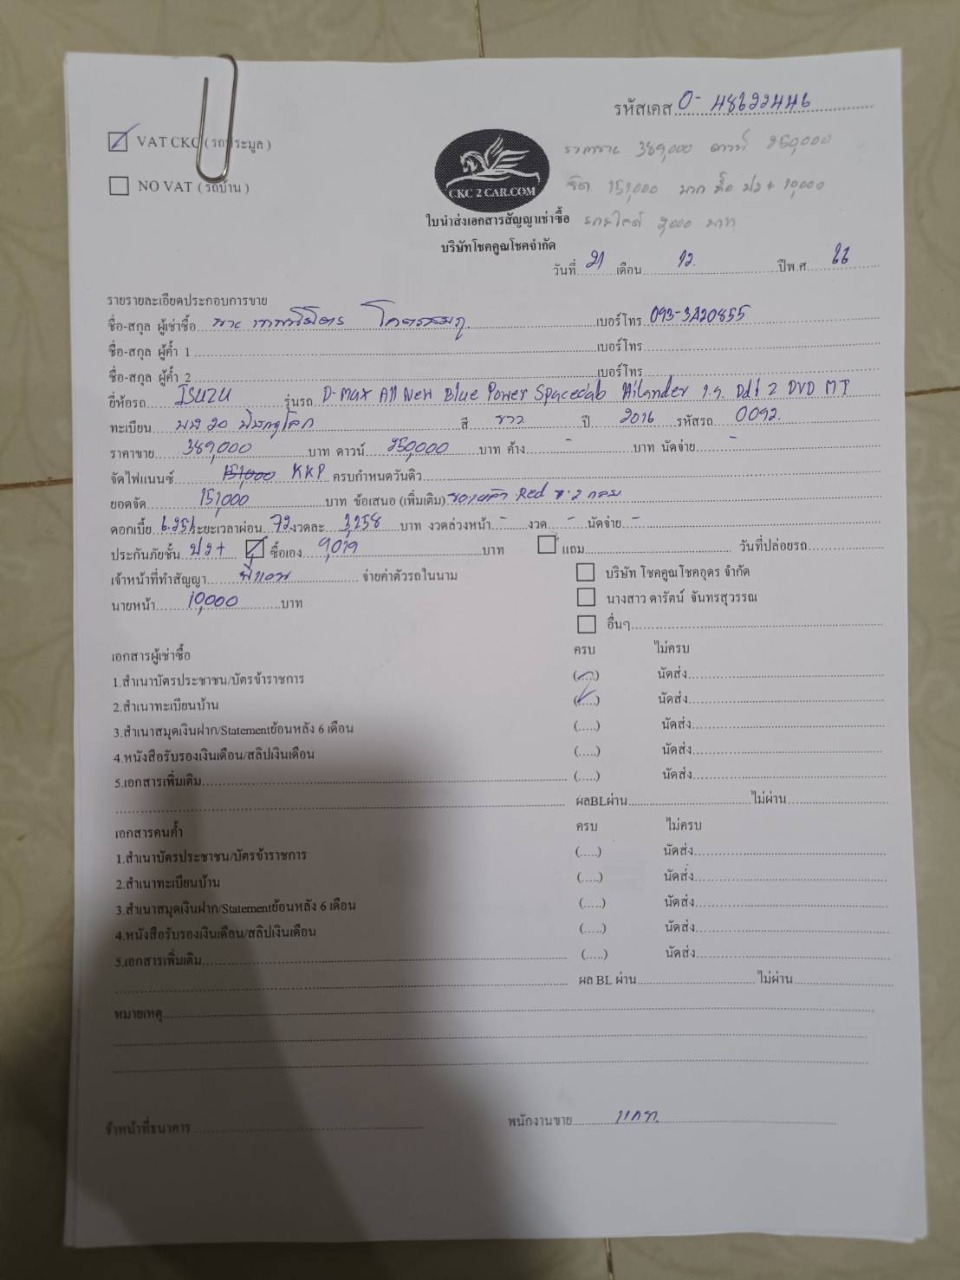 รหัสเคส 0-48622446
VAT CKC ( รถประมูล )
ราคาขาย 389,000 ดาวน์ 250,000
NO VAT ( รถบ้าน )
CKC 2 CAR.COM
จัด 151,000 บวก ป2+ 10,000
ใบนำส่งเอกสารสัญญาเช่าซื้อ
บริษัทโชคคูณโชคจำกัด
วันที่ 21 เดือน 12. ปีพ.ศ. 66
รายรายละเอียดประกอบการขาย
ชื่อ-สกุล ผู้เช่าซื้อ นาย เบอร์โทร 093-3220855
ชื่อ-สกุล ผู้ค้ำ 1 เบอร์โทร
ชื่อ-สกุล ผู้ค้ำ 2 เบอร์โทร
ยี่ห้อรถ ISUZU รุ่นรถ D-Max All New Blue Power Spacecab Hilander 1.9 Ddi Z DVD MT
ทะเบียน พิษณุโลก สี ขาว ปี 2016 รหัสรถ 0092.
ราคาขาย 389,000 บาท ดาวน์ 250,000 บาท ค้าง - บาท นัดจ่าย -
จัดไฟแนนซ์ 151,000 KKP ครบกำหนดวันดิว
ยอดจัด 151,000 บาท ข้อเสนอ (เพิ่มเติม) Red
ดอกเบี้ย 6.25% ระยะเวลาผ่อน 72 งวดละ 3,258 บาท งวดล่วงหน้า - งวด - นัดจ่าย -
ประกันภัยชั้น ป2+ ซื้อเอง 9,019 บาท แถม วันที่ปล่อยรถ
เจ้าหน้าที่ทำสัญญา จ่ายค่าตัวรถในนาม
บริษัท โชคคูณโชคอุดร จำกัด
นายหน้า 10,000 บาท
นางสาว ดารัตน์ จันทรสุวรรณ
อื่นๆ
เอกสารผู้เช่าซื้อ ครบ ไม่ครบ
1.สำเนาบัตรประชาชน/บัตรข้าราชการ (....) นัดส่ง
2.สำเนาทะเบียนบ้าน (....) นัดส่ง
3.สำเนาสมุดเงินฝาก/Statementย้อนหลัง 6 เดือน (....) นัดส่ง
4.หนังสือรับรองเงินเดือน/สลิปเงินเดือน (....) นัดส่ง
5.เอกสารเพิ่มเติม (....) นัดส่ง
ผลBLผ่าน ไม่ผ่าน
เอกสารคนค้ำ ครบ ไม่ครบ
1.สำเนาบัตรประชาชน/บัตรข้าราชการ (....) นัดส่ง
2.สำเนาทะเบียนบ้าน (....) นัดส่ง
3.สำเนาสมุดเงินฝาก/Statementย้อนหลัง 6 เดือน (....) นัดส่ง
4.หนังสือรับรองเงินเดือน/สลิปเงินเดือน (....) นัดส่ง
5.เอกสารเพิ่มเติม (....) นัดส่ง
ผล BL ผ่าน ไม่ผ่าน
หมายเหตุ
จ้าหน้าที่ธนาคาร พนักงานขาย